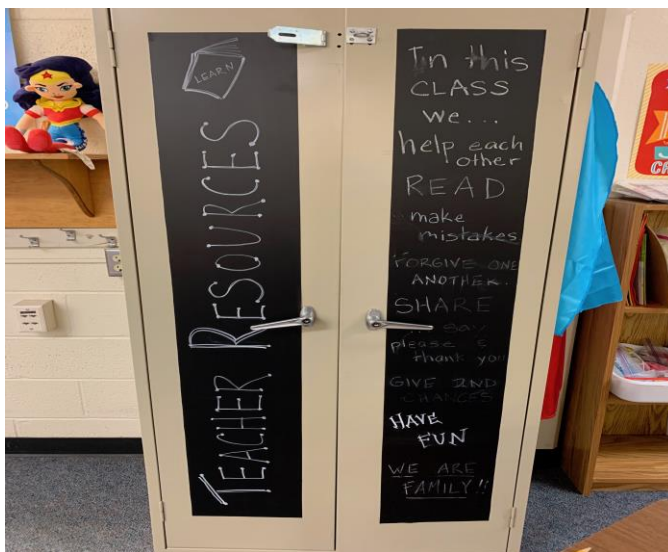 LEARN
TEACHER RESOURCES
In this
CLASS
we...
help each
other
READ
make
mistakes
FORGIVE ONE
ANOTHER.
SHARE
... say
please &
thank you
GIVE 2ND
CHANCES
HAVE
FUN
WE ARE
FAMILY!!